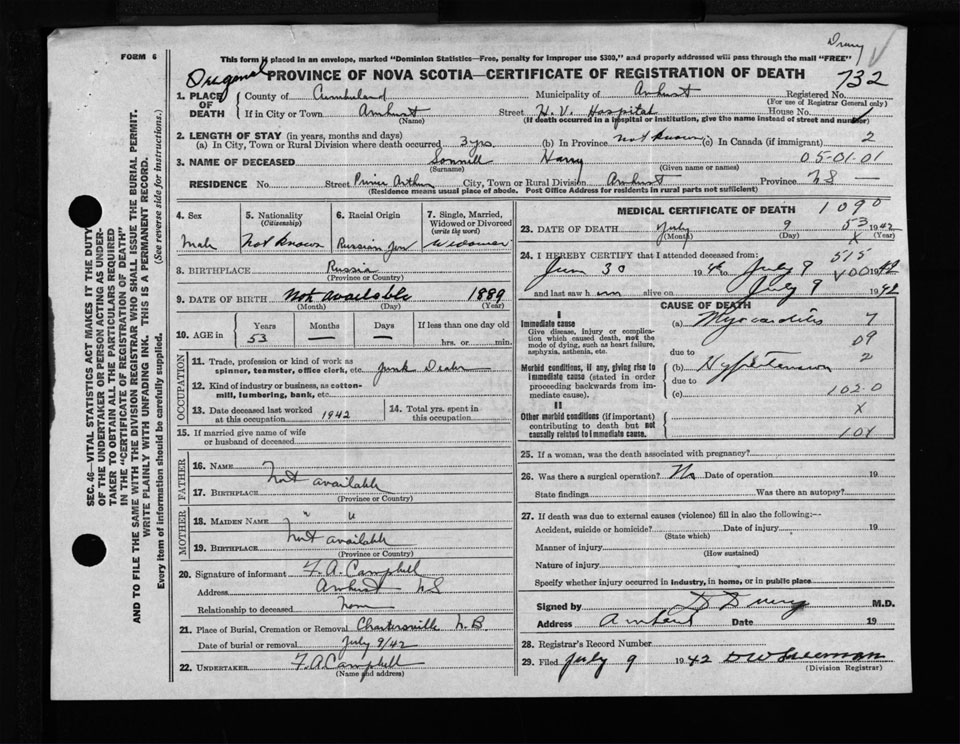 Drury
FORM 6
This form is placed in an envelope, marked "Dominion Statistics—Free, penalty for improper use $300," and properly addressed will pass through the mail "FREE"
PROVINCE OF NOVA SCOTIA—CERTIFICATE OF REGISTRATION OF DEATH
732
1. PLACE OF DEATH
County of Cumberland Municipality of Amherst Registered No.
(For use of Registrar General only)
If in City or Town Amherst Street H. V. Hospital House No.
(Name) (If death occurred in a hospital or institution, give the name instead of street and number)
2. LENGTH OF STAY (in years, months and days)
(a) In City, Town or Rural Division where death occurred 3 yrs. (b) In Province not known (c) In Canada (if immigrant) 2
3. NAME OF DECEASED Harry 05-01-01
(Surname) (Given name or names)
RESIDENCE No. Street Prince Arthur City, Town or Rural Division Amherst Province NS
(Residence means usual place of abode. Post Office Address for residents in rural parts not sufficient)
4. Sex
Male
5. Nationality (Citizenship)
Not Known
6. Racial Origin
Russian Jew
7. Single, Married, Widowed or Divorced (write the word)
Widower
8. BIRTHPLACE Russia
(Province or Country)
9. DATE OF BIRTH Not available 1889
(Month) (Day) (Year)
10. AGE in
Years Months Days If less than one day old
53 — — hrs. or min.
OCCUPATION
11. Trade, profession or kind of work as spinner, teamster, office clerk, etc. Junk Dealer
12. Kind of industry or business, as cotton-mill, lumbering, bank, etc.
13. Date deceased last worked at this occupation 1942
14. Total yrs. spent in this occupation
15. If married give name of wife or husband of deceased
FATHER
16. NAME
Not available
17. BIRTHPLACE
(Province or Country)
MOTHER
18. MAIDEN NAME " "
Not available
19. BIRTHPLACE
(Province or Country)
20. Signature of informant F. A. Campbell
Address Amherst NS
Relationship to deceased None
21. Place of Burial, Cremation or Removal Chartersville N.B
Date of burial or removal July 9/42
22. UNDERTAKER F. A. Campbell
(Name and address)
MEDICAL CERTIFICATE OF DEATH 1090
23. DATE OF DEATH July 9 53 1942
(Month) (Day) X (Year)
24. I HEREBY CERTIFY that I attended deceased from: 515
June 30 1942 to July 9 1942
and last saw him alive on July 9 1942
CAUSE OF DEATH
I
Immediate cause
Give disease, injury or complication which caused death, not the mode of dying, such as heart failure, asphyxia, asthenia, etc.
(a) Myocarditis 7
09
due to
Morbid conditions, if any, giving rise to immediate cause (stated in order proceeding backwards from immediate cause).
(b) Hypertension 2
due to
(c) 102.0
II
Other morbid conditions (if important) contributing to death but not causally related to immediate cause.
X
101
25. If a woman, was the death associated with pregnancy?
26. Was there a surgical operation? No Date of operation 19
State findings Was there an autopsy?
27. If death was due to external causes (violence) fill in also the following:—
Accident, suicide or homicide? Date of injury 19
(State which)
Manner of injury
(How sustained)
Nature of injury
Specify whether injury occurred in industry, in home, or in public place
Signed by D Drury M.D.
Address Amherst Date 19
28. Registrar's Record Number
29. Filed July 9 1942
(Division Registrar)
SEC. 46—VITAL STATISTICS ACT MAKES IT THE DUTY
OF THE UNDERTAKER OR PERSON ACTING AS UNDER-
TAKER TO OBTAIN ALL THE PARTICULARS REQUIRED
IN THE "CERTIFICATE OF REGISTRATION OF DEATH"
AND TO FILE THE SAME WITH THE DIVISION REGISTRAR WHO SHALL ISSUE THE BURIAL PERMIT.
WRITE PLAINLY WITH UNFADING INK. THIS IS A PERMANENT RECORD.
Every item of information should be carefully supplied. (See reverse side for instructions.)